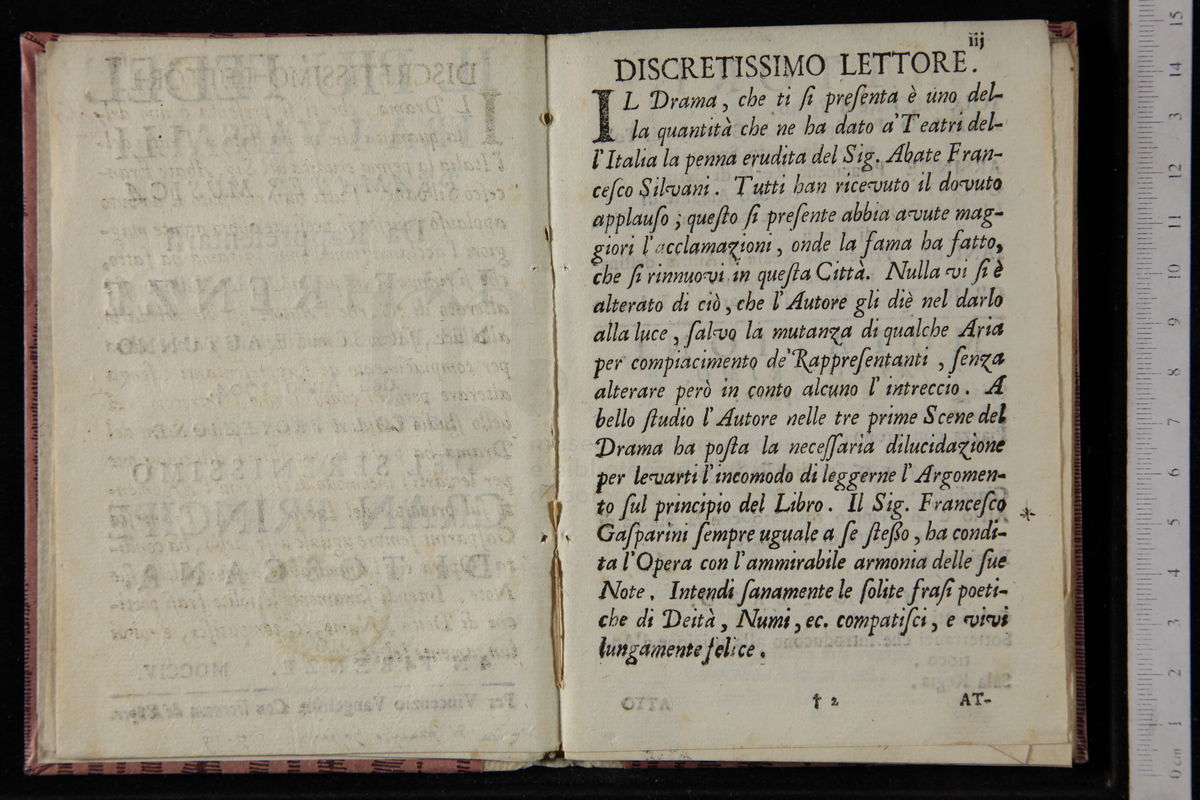 iij
DISCRETISSIMO LETTORE.
IL Drama, che ti ſi preſenta è uno del-
la quantità che ne ha dato a' Teatri del-
l'Italia la penna erudita del Sig. Abate Fran-
ceſco Silvani. Tutti han ricevuto il dovuto
applauſo; queſto ſi preſente abbia avute mag-
giori l'acclamazioni, onde la fama ha fatto,
che ſi rinnuovi in queſta Città. Nulla vi ſi è
alterato di ciò, che l'Autore gli diè nel darlo
alla luce, ſalvo la mutanza di qualche Aria
per compiacimento de' Rappreſentanti, ſenza
alterare però in conto alcuno l'intreccio. A
bello ſtudio l'Autore nelle tre prime Scene del
Drama ha poſta la neceſſaria dilucidazione
per levarti l'incomodo di leggerne l'Argomen-
to ſul principio del Libro. Il Sig. Franceſco
Gaſparini ſempre uguale a ſe ſteßo, ha condi-
ta l'Opera con l'ammirabile armonia delle ſue
Note. Intendi ſanamente le ſolite fraſi poeti-
che di Deità, Numi, ec. compatiſci, e vivi
lungamente felice.
† 2
AT-
0 cm
1
2
3
4
5
6
7
8
9
10
11
12
13
14
15